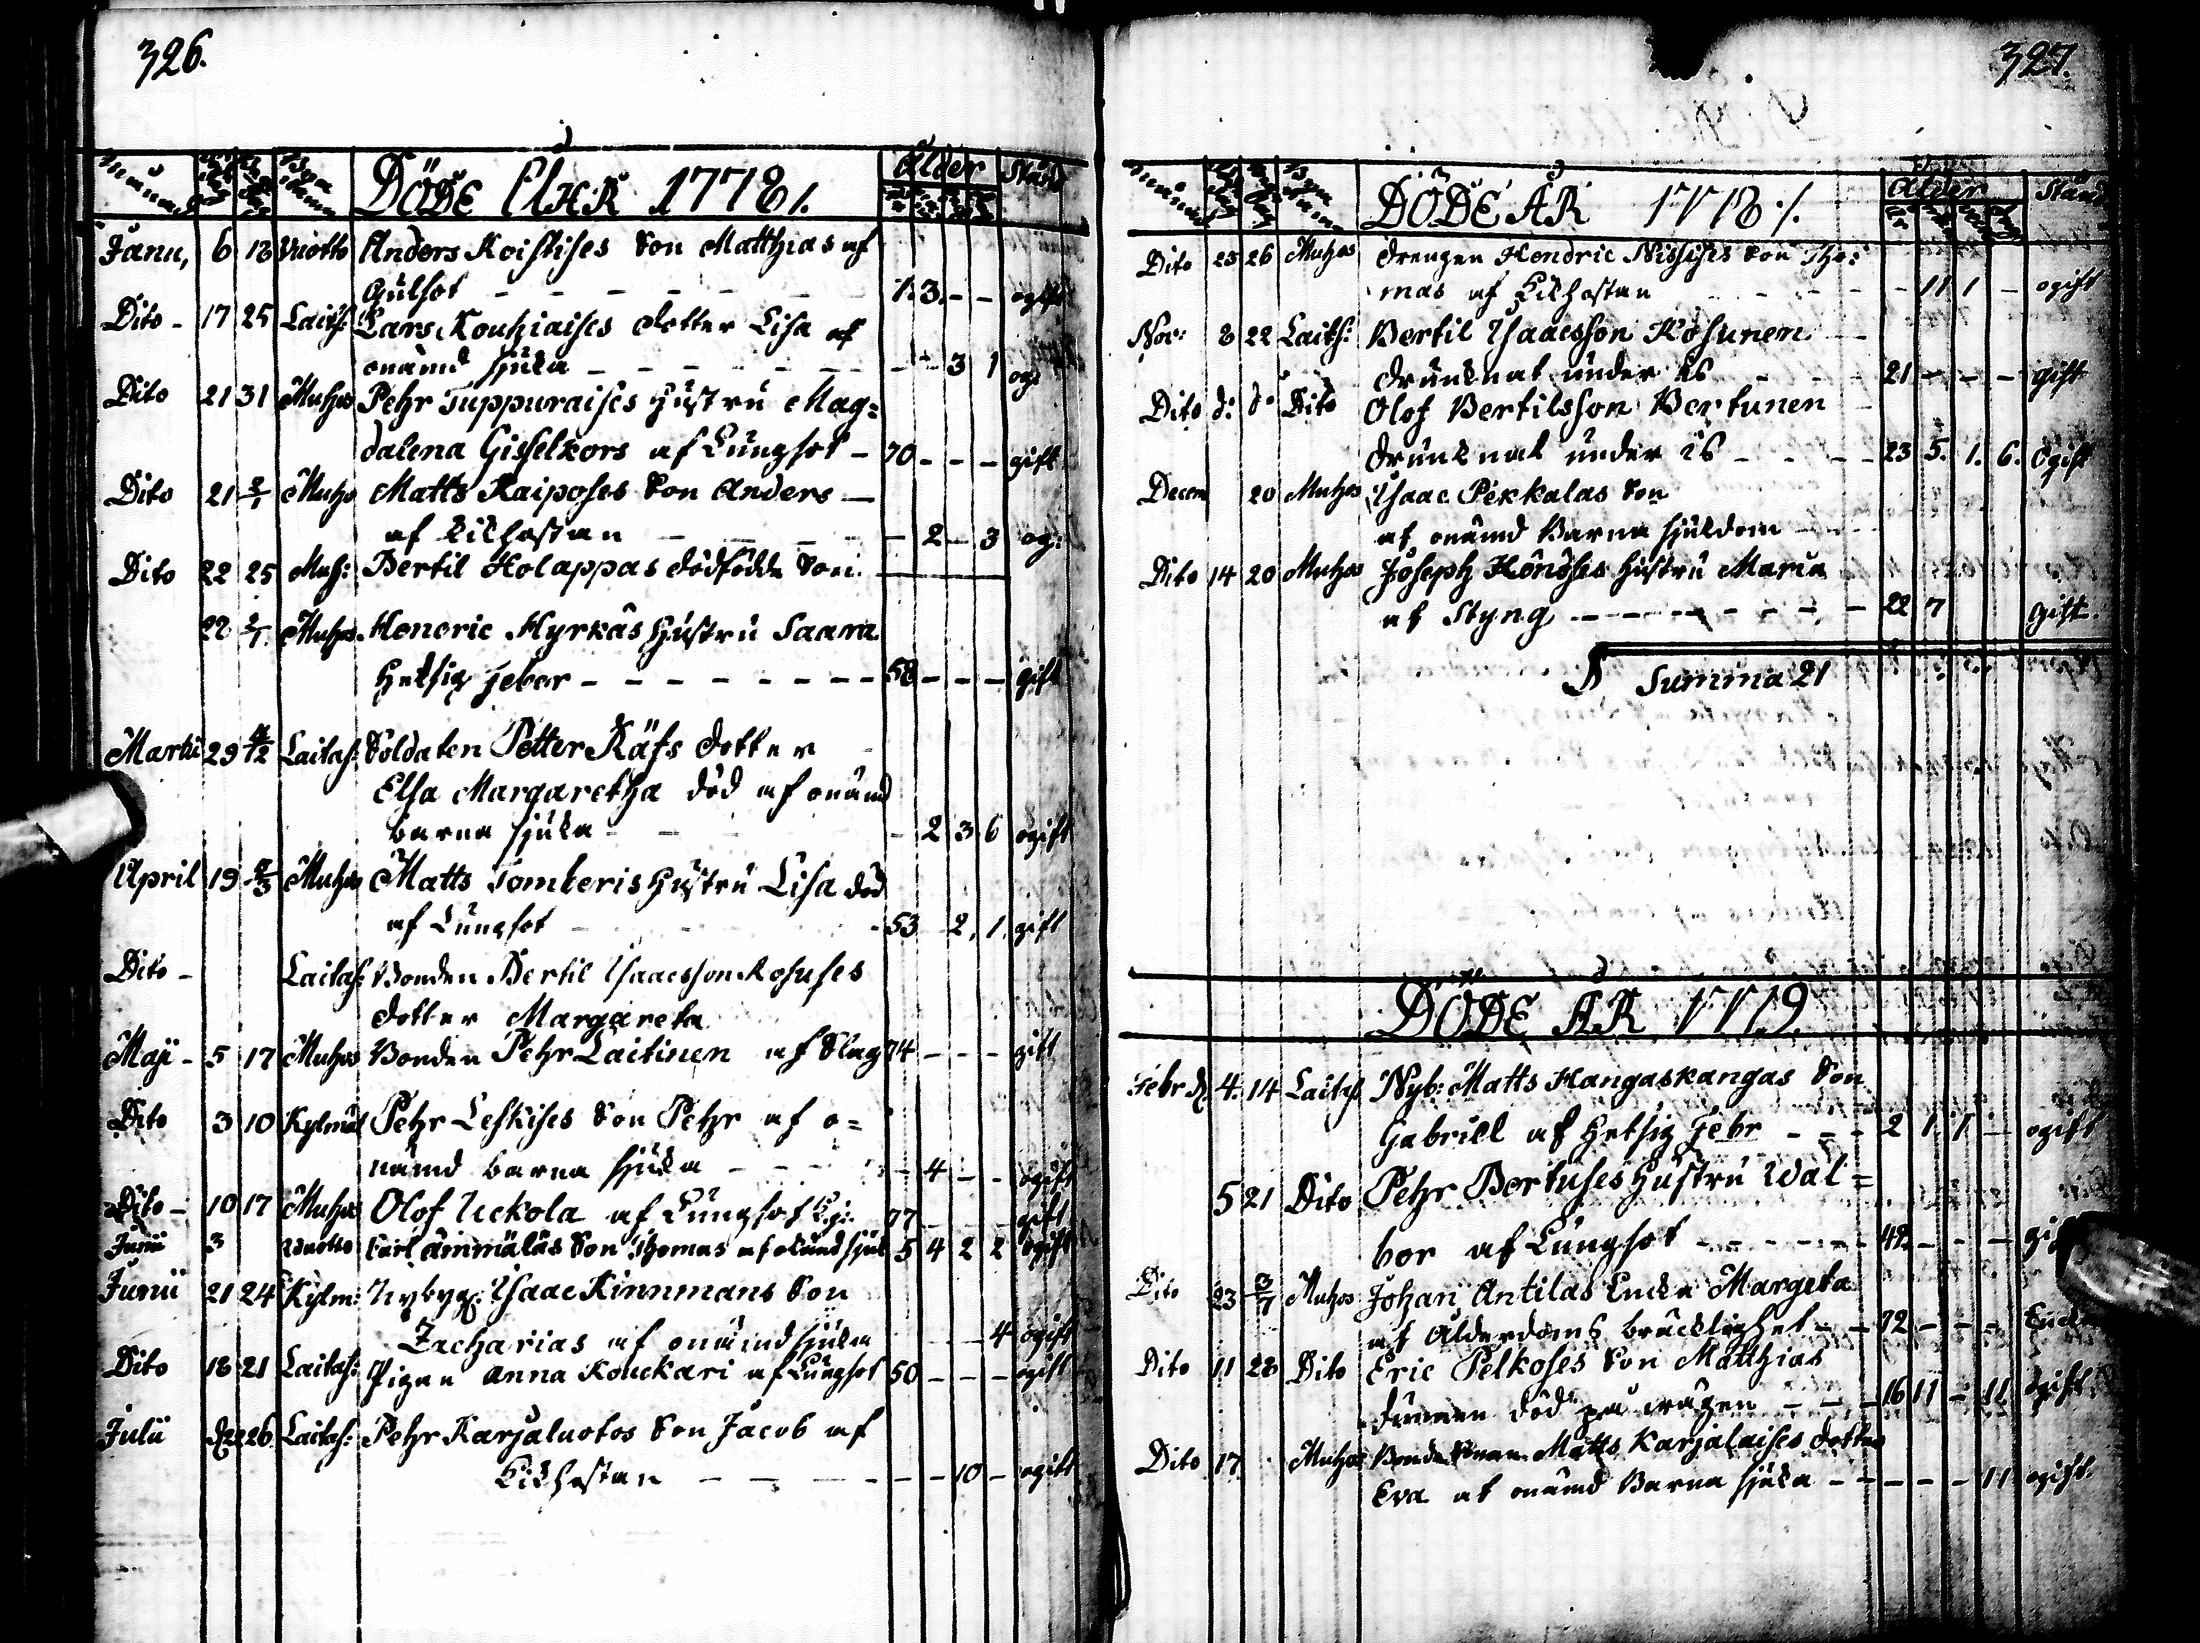 326.
DÖDE ÅHR 1778/.
Ålder
Stånd
Janu, 6 18 Vuotto Anders Koistises Son Matthias af
Gulsot - - - - - 1. 3. - - ogift
Dito - 17 25 Laits: Lars Kouhiaises dotter Lisa af
onämd sjuka - - - - - - - 3 1 og:
Dito 21 31 Muhos Pehr Tuppuraises Hustru Mag=
dalena Gisselkors af Lungsot - 70 - - - gift
Dito 21 2/1 Muhos Matts Kaiposes Son Anders -
af kikhostan - 2 - 3 og:
Dito 22 25 Muh: Bertil Holappas dödfödde Son
22 2/1 Muhos Hendric Hyrkäs Hustru Saara
Hetsig feber - - - - - - - - 58 - - - gift
Martii 29 Laitas: Soldaten Petter Räfs dotter
Elsa Margaretha död af onämd
barna sjuka - 2 3 6 ogift
April 19 Muhos Matts Tomberis Hustru Lisa död
af Lungsot - 53 2, 1. gift
Dito - Laitas: Bonden Bertil Isaacsson Kosuses
dotter Margareta
Maji - 5 17 Muhos Bonden Pehr Laitinen af Slag 74 - - - gift
Dito 3 10 Kylmäl Pehr Leskises Son Pehr af o=
nämd barna sjuka - - - - 4 - - ogift
Dito - 10 17 Muhos Olof Uckola af Lungsot 77 - - - gift
Junii 3 Vuotto Carl Ämmäläs Son Thomas af okänd sjuk 5 4 2 2 ogift
Junii 21 24 Kylm: Nybyg. Isaac Kinnmans Son
Zacharias af onämd sjuka - - - 4 ogift
Dito 18 21 Laitas: Pigan Anna Kouckari af Lungsot 50 - - - ogift
Julii 26 Laitas: Pehr Karjaluotos Son Jacob af
Kikhostan - - - - - - 10 - ogift
327.
DÖDE ÅR 1778./.
Ålder
Stånd
Dito 25 26 Muhos drengen Hendric Nissises Son Tho:
mas af Kikhostan - - - - - 11 1 - ogift
Nov: 8 22 Laits: Bertil Isaacsson Kosunen
drunknat under is - - - 21 - - - gift
Dito d: d° Dito Olof Bertilsson Bertunen
drunknat under is - - - - 23 5. 1. 6. Ogift
Decem 20 Muhos Isaac Pekkalas Son
af onämd Barna sjukdom
Dito 14 20 Muhos Joseph Hustru Maria
af Styng - - - - - - - - 22 7 Gift.
Summa 21
DÖDE ÅR 1779.
Febr 4. 14 Laitas Nyb: Matts Hangaskangas Son
Gabriel af Hetsig Febr - - - 2 1. 1 - ogift
5 21 Dito Pehr Bertuses Hustru Wal=
bor af Lungsot - - - - - - 42. - - -
Dito 23 3/7 Muhos Johan Antilas Encka Margeta
af Ålderdoms bräcklighet - - 72 - - -
Dito 11 28 Dito Eric Pelkoses Son Matthias
död på wägen - - - 16 11 - 11 Ogift.
Dito 17. Muhos Matts Karjalaises dotter
Eva af onämd Barna sjuka - - - - - - 11 ogift.